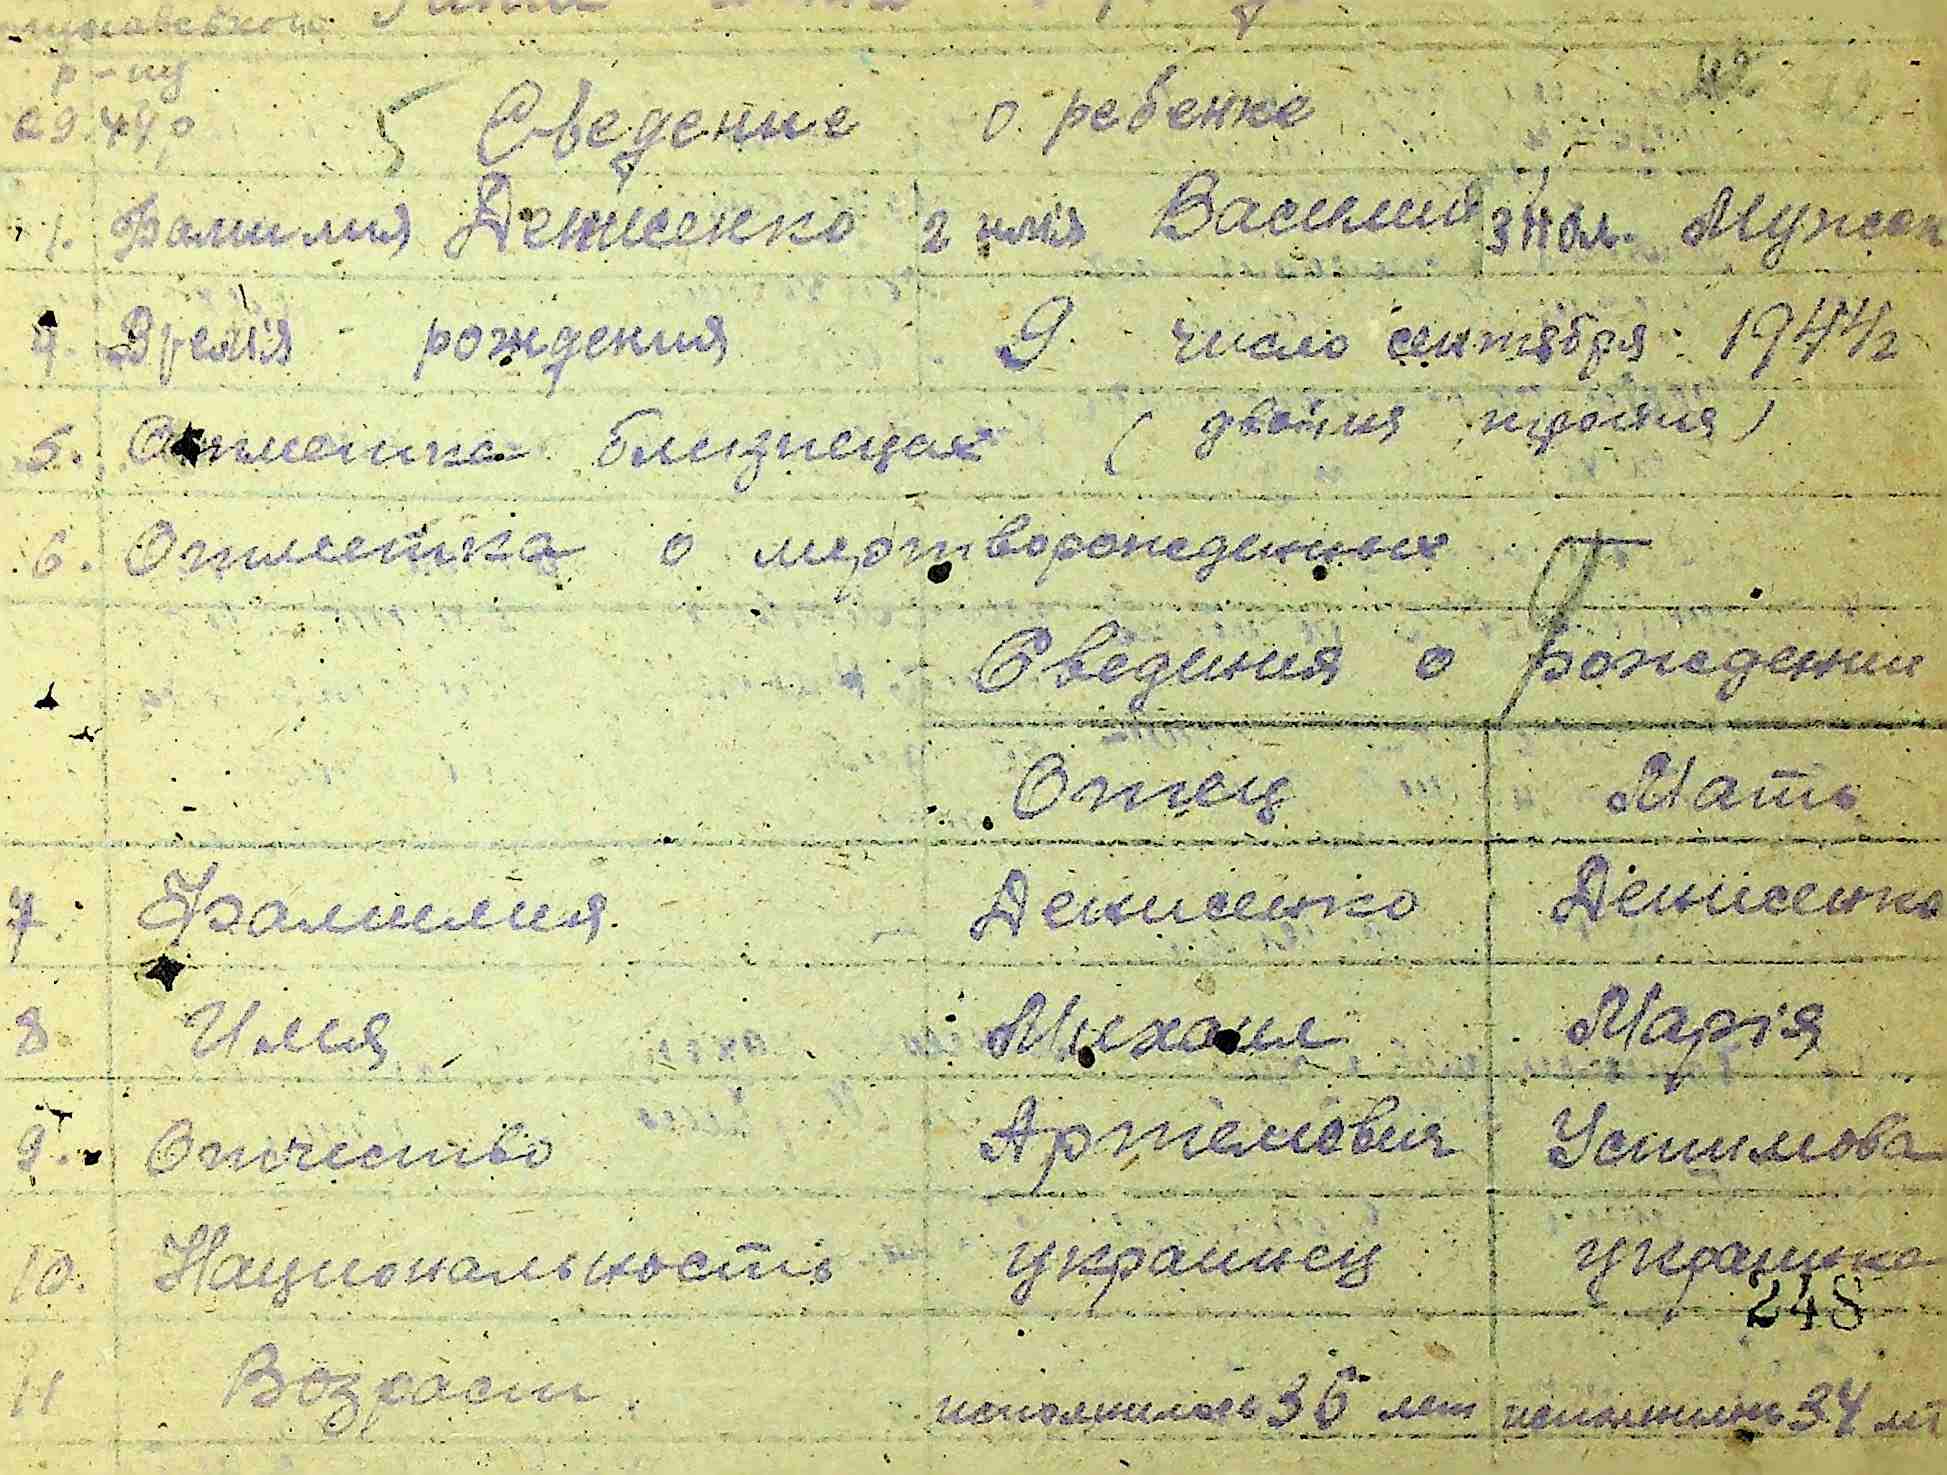 р-ну
42
5 Сведение о ребенке
1. Фамилия Денисенко 2 имя Василий 3 пол. Мужск
4. Время рождения 9 число сентября 1944 г
5. Отметка близнецах (двойня тройня)
6. Отметка о мертворожденных
Сведения о рождении
Отец Мать
7. Фамилия Денисенко Денисенко
8 Имя Михаил Марія
9. Отчество Артемович Устимова
10. Национальность украинец украинка
248
11 Возраст исполнилось 36 лет исполнилось 34 лет